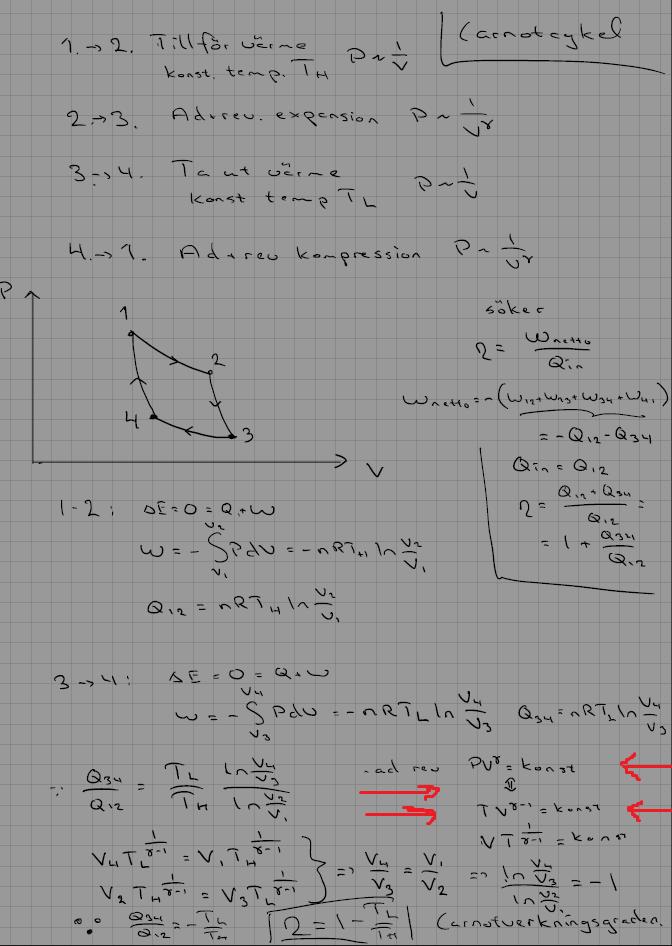 Carnotcykel
1. → 2. Tillför värme
konst. temp. T_H P ~ 1/V
2 → 3. Ad+rev. expansion P ~ 1/V^γ
3. → 4. Ta ut värme
konst temp T_L P ~ 1/V
4. → 1. Ad+rev kompression P ~ 1/V^γ
P
1
2
4
3
V
söker
η = W_netto/Q_in
W_netto = -(W_12+W_23+W_34+W_41)
= -Q_12 - Q_34
Q_in = Q_12
η = (Q_12 + Q_34)/Q_12 =
= 1 + Q_34/Q_12
1-2: ΔE = 0 = Q+W
W = -∫_{V_1}^{V_2} PdV = -nRT_H ln V_2/V_1
Q_12 = nRT_H ln V_2/V_1
3 → 4: ΔE = 0 = Q+W
W = -∫_{V_3}^{V_4} PdV = -nRT_L ln V_4/V_3 Q_34 = nRT_L ln V_4/V_3
∵ Q_34/Q_12 = T_L/T_H (ln V_4/V_3)/(ln V_2/V_1)
- ad rev PV^γ = konst
⇕
TV^{γ-1} = konst
VT^{1/(γ-1)} = konst
V_4 T_L^{1/(γ-1)} = V_1 T_H^{1/(γ-1)}
V_2 T_H^{1/(γ-1)} = V_3 T_L^{1/(γ-1)} } => V_4/V_3 = V_1/V_2 => (ln V_4/V_3)/(ln V_2/V_1) = -1
∴ Q_34/Q_12 = -T_L/T_H η = 1 - T_L/T_H Carnotverkningsgraden.